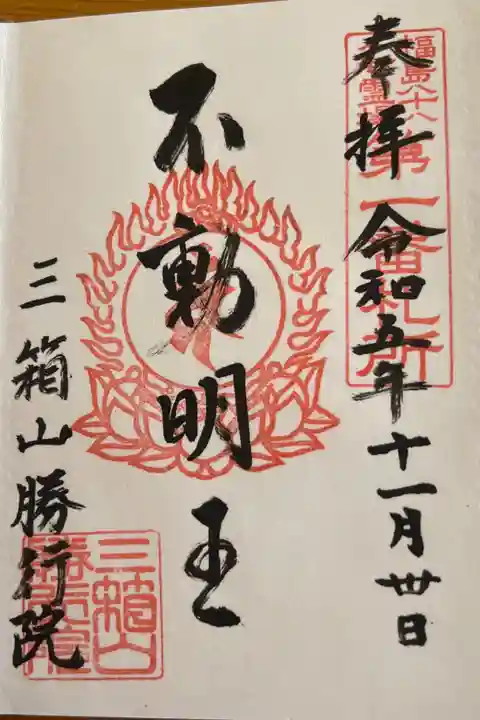 奉拝 令和五年十一月卅日
福島八十八ヶ所霊場第一番札所
不動明王
三箱山勝行院
三箱山
勝行院